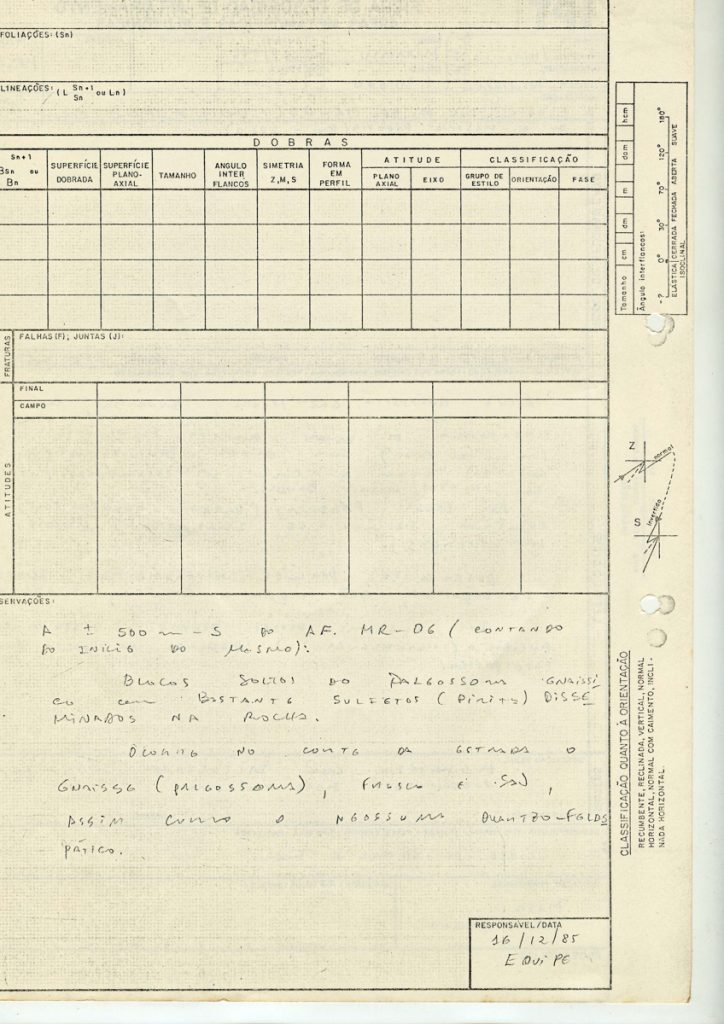 FOLIAÇÕES: (Sn)
LINEAÇÕES: (L Sn+1 Sn ou Ln)
DOBRAS
Sn+1
BSn ou
Bn
SUPERFÍCIE
DOBRADA
SUPERFÍCIE
PLANO-
AXIAL
TAMANHO
ANGULO
INTER
FLANCOS
SIMETRIA
Z, M, S
FORMA
EM
PERFIL
ATITUDE
PLANO
AXIAL
EIXO
CLASSIFICAÇÃO
GRUPO DE
ESTILO
ORIENTAÇÃO
FASE
FRATURAS
FALHAS (F); JUNTAS (J):
FINAL
CAMPO
ATITUDES
SERVAÇÕES:
A ± 500 m - S DO AF. MR-06 (CONTANDO
DO INÍCIO DO MESMO):
BLOCOS SOLTOS DO PALEOSSOMA GNAISSI
CO COM BASTANTE SULFETOS (PIRITA) DISSE
MINADOS NA ROCHA.
OCORRE NO CORTE DA ESTRADA O
GNAISSE (PALEOSSOMA), FRESCO E SÃO,
ASSIM COMO O NEOSSOMA QUARTZO-FELDS
PÁTICO.
RESPONSÁVEL/DATA
16/12/85
EQUIPE
Tamanho cm dm m dam hcm
Ângulo interflancos:
-? 0° 30° 70° 120° 180°
ELÁSTICA CERRADA FECHADA ABERTA SUAVE
ISOCLINAL
Z
normal
S
invertido
CLASSIFICAÇÃO QUANTO À ORIENTAÇÃO
RECUMBENTE, RECLINADA, VERTICAL, NORMAL
HORIZONTAL, NORMAL COM CAIMENTO, INCLI-
NADA HORIZONTAL.